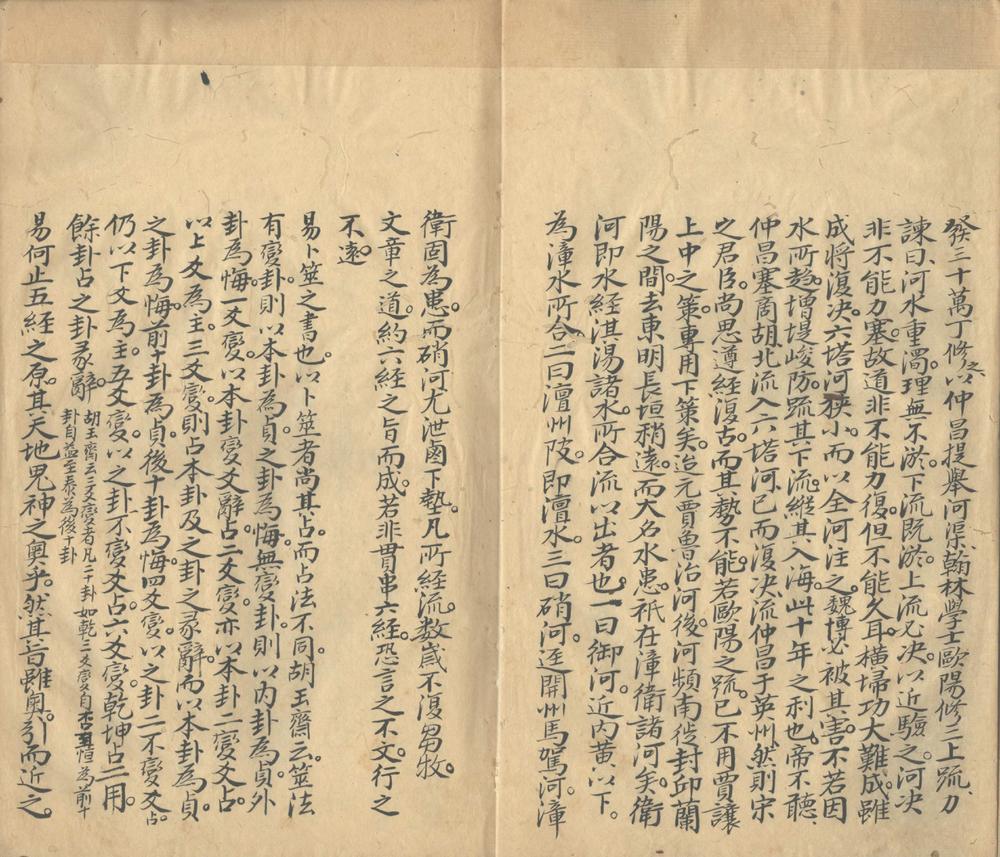 發三十萬丁修之以仲昌提舉河渠翰林學士歐陽修三上䟽力
諫曰河水重濁理無不淤下流既淤上流必决以近驗之河决
非不能力塞故道非不能力復但不能久耳橫埽功大難成雖
成將復决六塔河狹小而以全河注之魏博必被其害不若因
水所趍增堤峻防䟽其下流縱其入海此十年之利也帝不聽
仲昌塞商胡北流入六塔河已而復决流仲昌于英州然則宋
之君臣尚思遵經復古而其勢不能若歐陽之䟽已不用賈讓
上中之策專用下策矣迨元賈魯治河後河頻南徙封邱蘭
陽之間去東明長垣稍遠而大名水患祇在漳衛諸河矣衛
河即水經淇湯諸水所合流以出者也一曰御河近内黄以下
為漳水所合二曰澶州陂即澶水三曰硝河逕開州馬駕河漳
衛固為患而硝河尤泄鹵下墊凡所經流数歲不復芻牧
文章之道約六經之旨而成若非貫串六經恐言之不文行之
不遠
易卜筮之書也以卜筮者尚其占而占法不同胡玉齋云筮法
有變卦則以本卦為貞之卦為悔無變卦則以内卦為貞外
卦為悔一爻變以本卦變爻辭占二爻變亦以本卦二變爻占
以上爻為主三爻變則占本卦及之卦之彖辭而以本卦為貞
之卦為悔前十卦為貞後十卦為悔四爻變以之卦二不變爻占
仍以下爻為主五爻變以之卦不變爻占六爻變乾坤占二用
餘卦占之卦彖辭胡玉齋云三爻變者凡二十卦如乾三爻變自否至恒為前十
卦自益至泰為後十卦
易何止五經之原其天地鬼神之奥乎然其旨雖奥引而近之